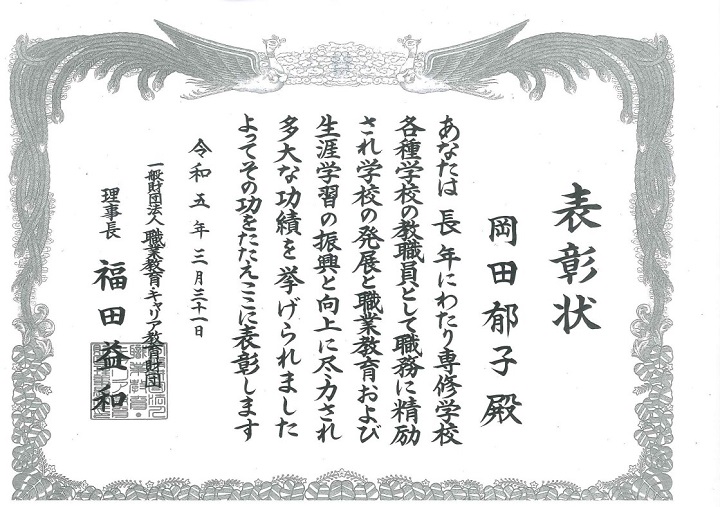 表彰状
岡田郁子殿
あなたは長年にわたり専修学校
各種学校の教職員として職務に精励
され学校の発展と職業教育および
生涯学習の振興と向上に尽力され
多大な功績を挙げられました
よってその功をたたえここに表彰します
令和五年三月三十一日
一般財団法人 職業教育・キャリア教育財団
理事長 福田益和